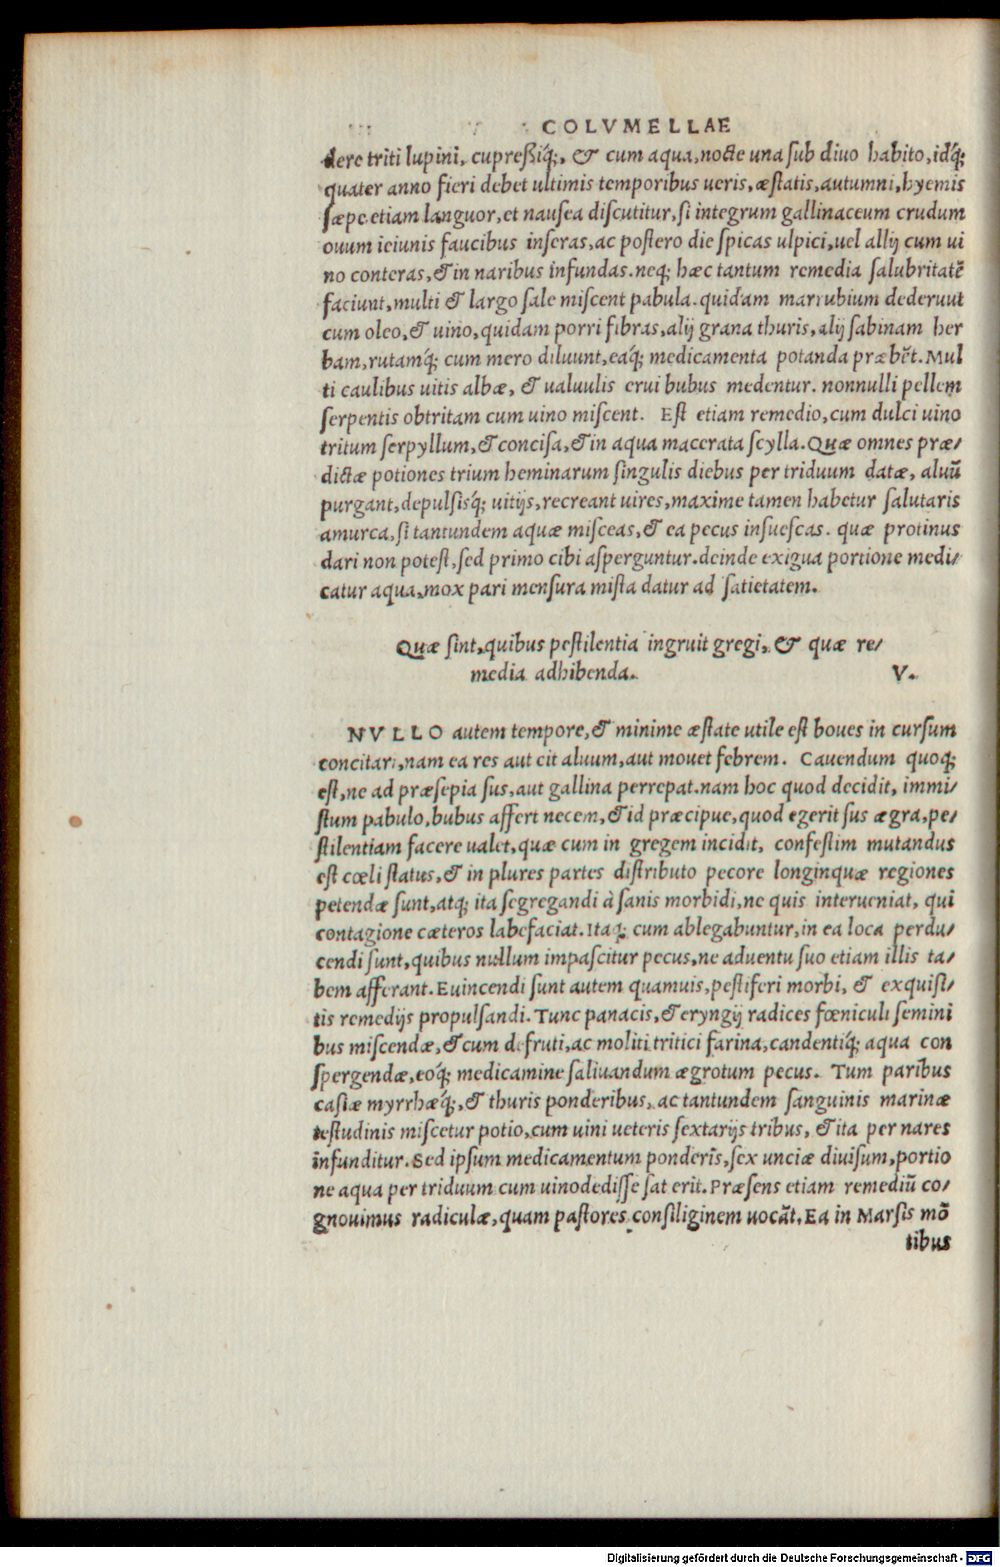 COLVMELLAE
dere triti lupini, cupreßiq́;, & cum aqua, nocte una sub diuo habito, idq́;
quater anno fieri debet ultimis temporibus ueris, æstatis, autumni, hyemis
sæpe etiam languor, et nausea discutitur, si integrum gallinaceum crudum
ouum ieiunis faucibus inseras, ac postero die spicas ulpici, uel allij cum ui
no conteras, & in naribus infundas. neq; hæc tantum remedia salubritatē
faciunt, multi & largo sale miscent pabula. quidam marrubium dederuut
cum oleo, & uino, quidam porri fibras, alij grana thuris, alij sabinam her
bam, rutamq́; cum mero diluunt, eaq́; medicamenta potanda præbēt. Mul
ti caulibus uitis albæ, & ualuulis erui bubus medentur. nonnulli pellem
serpentis obtritam cum uino miscent. Est etiam remedio, cum dulci uino
tritum serpyllum, & concisa, & in aqua macerata scylla. Quæ omnes præ/
dictæ potiones trium heminarum singulis diebus per triduum datæ, aluū
purgant, depulsisq́; uitijs, recreant uires, maxime tamen habetur salutaris
amurca, si tantundem aquæ misceas, & ea pecus insuescas. quæ protinus
dari non potest, sed primo cibi asperguntur. deinde exigua portione medi/
catur aqua, mox pari mensura mista datur ad satietatem.
Quæ sint, quibus pestilentia ingruit gregi, & quæ re/
media adhibenda. V.
NVLLO autem tempore, & minime æstate utile est boues in cursum
concitari, nam ea res aut cit aluum, aut mouet febrem. Cauendum quoq;
est, ne ad præsepia sus, aut gallina perrepat. nam hoc quod decidit, immi/
stum pabulo, bubus affert necem, & id præcipue, quod egerit sus ægra, pe/
stilentiam facere ualet, quæ cum in gregem incidit, confestim mutandus
est cœli status, & in plures partes distributo pecore longinquæ regiones
petendæ sunt, atq; ita segregandi à sanis morbidi, ne quis interueniat, qui
contagione cæteros labefaciat. Itaq; cum ablegabuntur, in ea loca perdu/
cendi sunt, quibus nullum impascitur pecus, ne aduentu suo etiam illis ta/
bem afferant. Euincendi sunt autem quamuis, pestiferi morbi, & exquisi/
tis remedijs propulsandi. Tunc panacis, & eryngij radices fœniculi semini
bus miscendæ, & cum defruti, ac moliti tritici farina, candentiq́; aqua con
spergendæ, eoq́; medicamine saliuandum ægrotum pecus. Tum paribus
casiæ myrrhæq́;, & thuris ponderibus, ac tantundem sanguinis marinæ
testudinis miscetur potio, cum uini ueteris sextarijs tribus, & ita per nares
infunditur. Sed ipsum medicamentum ponderis, sex unciæ diuisum, portio
ne aqua per triduum cum uinodedisse sat erit. Præsens etiam remediū co/
gnouimus radiculæ, quam pastores consiliginem uocāt. Ea in Marsis mō
tibus
Digitalisierung gefördert durch die Deutsche Forschungsgemeinschaft - DFG